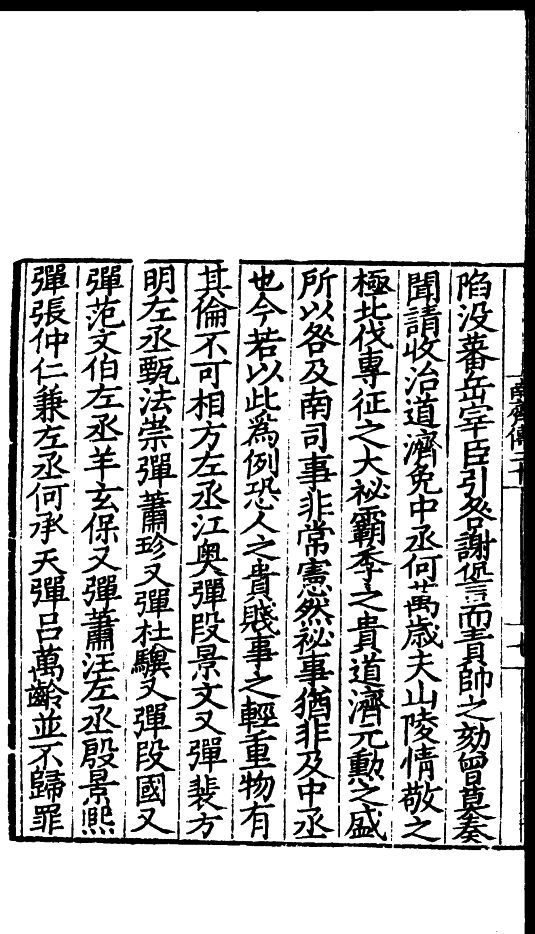 陷没蕃岳宰臣引咎謝𠍴言而責帥之劾曾莫奏
聞請收治道濟免中丞何萬歳夫山陵情敬之
極北伐專征之大祕霸季之貴道濟元勲之盛
所以咎及南司事非常憲然祕事猶非及中丞
也今若以此為例恐人之貴賤事之輕重物有
其倫不可相方左丞江奥彈段景文又彈裴方
明左丞甄法崇彈蕭珍又彈杜驥又彈段國又
彈范文伯左丞羊玄保又彈蕭汪左丞殷景熙
彈張仲仁兼左丞何承天彈吕萬齡並不歸罪